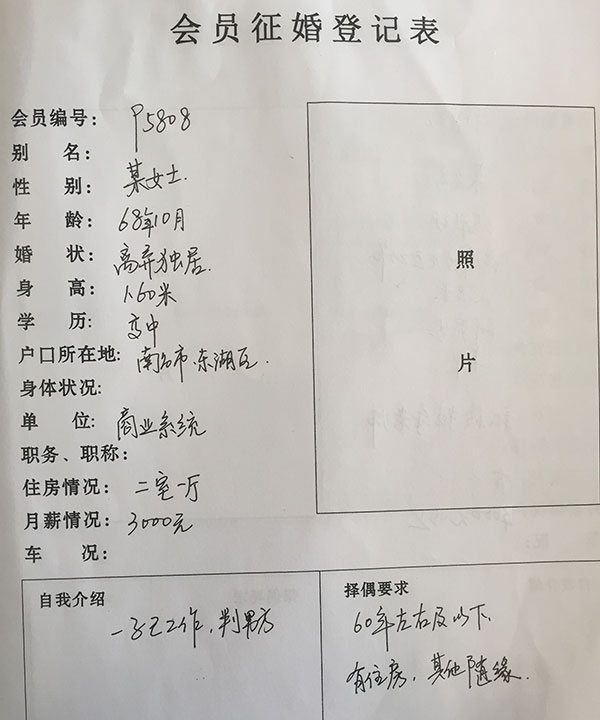 会员征婚登记表
会员编号： P5808
别 名：
性 别： 某女士.
年 龄： 68年10月
婚 状： 离异独居.
身 高： 1.60米
学 历： 高中
户口所在地: 南昌市.东湖区.
身体状况:
单 位: 商业系统
职务、职称：
住房情况： 二室一厅
月薪情况： 3000元
车 况：
照
片
自我介绍
一子已工作，判男方
择偶要求
60年左右及以下.
有住房，其他随缘.